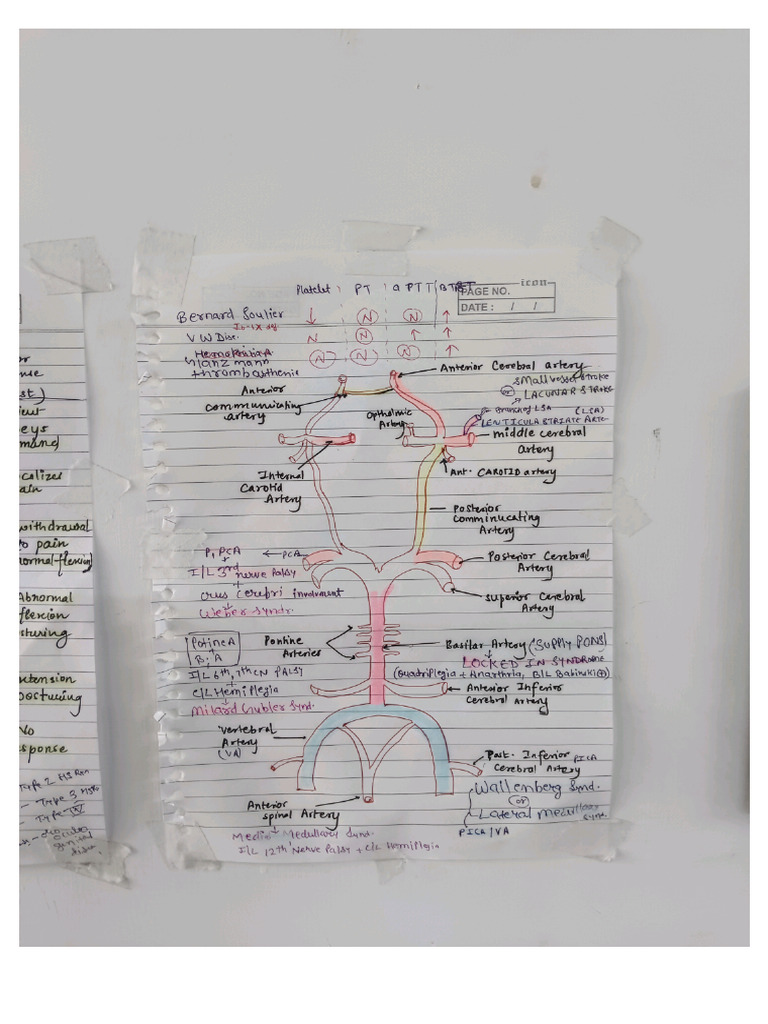 icon
PAGE NO.
DATE : / /
Platelet PT a PTT BT
Bernard Soulier ↓ N N ↑
VW Dise. N N ↑ ↑
Glanzmann N N N ↑
thrombasthenia
Anterior Cerebral artery
Small vessel stroke
or
LACUNAR STROKE
Anterior
communicating
artery
Opthalmic
Artery
Branch of LSA (LSA)
LENTICULA STRIATE Arte.
middle cerebral
artery
Ant. CAROTID artery
Internal
Carotid
Artery
Posterior
Comminucating
Artery
P, PCA ← PCA
+
I/L 3rd nerve Palsy
+
Crus Cerebri involvment
Weber Syndr.
Posterior Cerebral
Artery
Superior Cerebral
Artery
Potine A
+
B. A
Pontine
Arteries
Basilar Artery (SUPPLY PONS)
LOCKED IN SYNDROME
(Quadriplegia + Anarthria, B/L Babinski +)
I/L 6th, 7th CN PALSY
+
C/L Hemiplegia
Milard Gubler Synd.
Anterior Inferior
Cerebral Artery
Vertebral
Artery
(VA)
Post. Inferior PICA
Cerebral Artery
Wallenberg Synd.
or
Lateral medullary
Synd.
PICA/VA
Anterior
Spinal Artery
Medial Medullary Synd.
I/L 12th Nerve Palsy + C/L Hemiplegia
withdrawal
to pain
Abnormal
flexion
No
Type 2
Type 3
Type IV